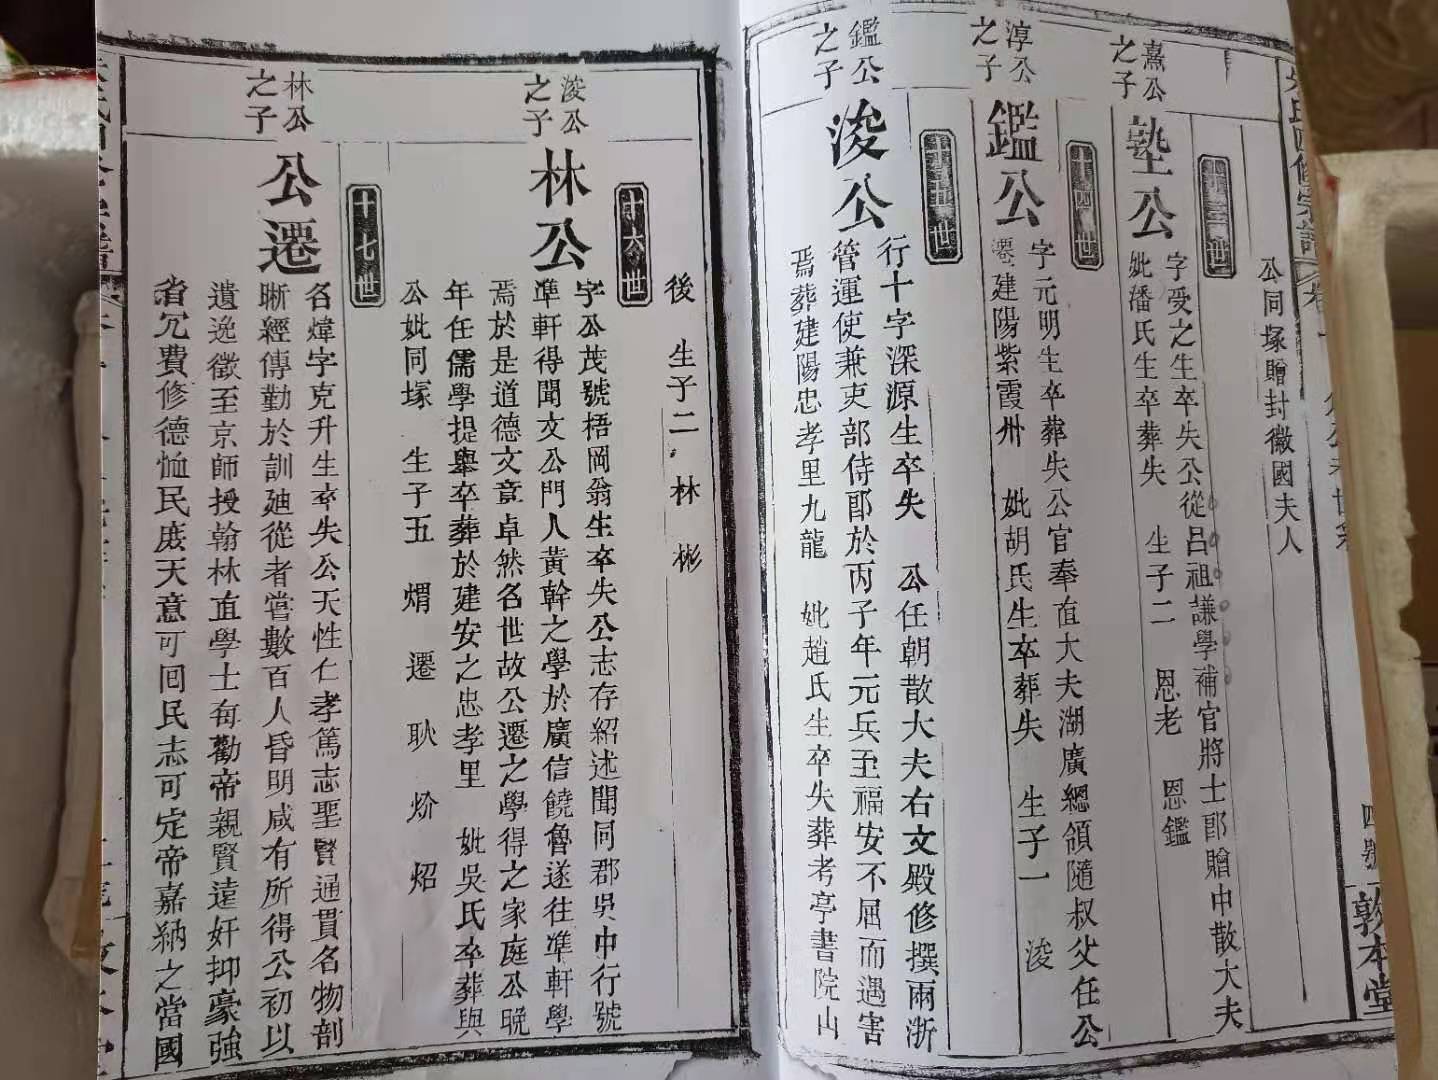 公同塚贈封徽國夫人
十三世
熹公
之子
塾公
字受之生卒失公從呂祖謙學補官將士郎贈中散大夫
妣潘氏生卒葬失 生子二 恩老 恩鑑
十四世
淳公
之子
鑑公
字元明生卒葬失公官奉直大夫湖廣總領隨叔父任公
遷建陽紫霞州 妣胡氏生卒葬失 生子一 浚
十五世
鑑公
之子
浚公
行十字深源生卒失 公任朝散大夫右文殿修撰兩浙
管運使兼吏部侍郎於丙子年元兵至福安不屈而遇害
焉葬建陽忠孝里九龍 妣趙氏生卒失葬考亭書院山
四號
敦本堂
後 生子二 林 彬
十六世
浚公
之子
林公
字公茂號梧岡翁生卒失公志存紹述聞同郡吳中行號
準軒得聞文公門人黃幹之學於廣信饒魯遂往準軒學
焉於是道德文章卓然名世故公遷之學得之家庭公晚
年任儒學提舉卒葬於建安之忠孝里 妣吳氏卒葬與
公妣同塚 生子五 煟 遷 耿 炌 炤
十七世
林公
之子
公遷
名煒字克升生卒失公天性仁孝篤志聖賢通貫名物剖
晰經傳勤於訓廸從者嘗數百人昏明咸有所得公初以
遺逸徵至京師授翰林直學士每勸帝親賢遠奸抑豪強
省冗費修德恤民庶天意可回民志可定帝嘉納之當國